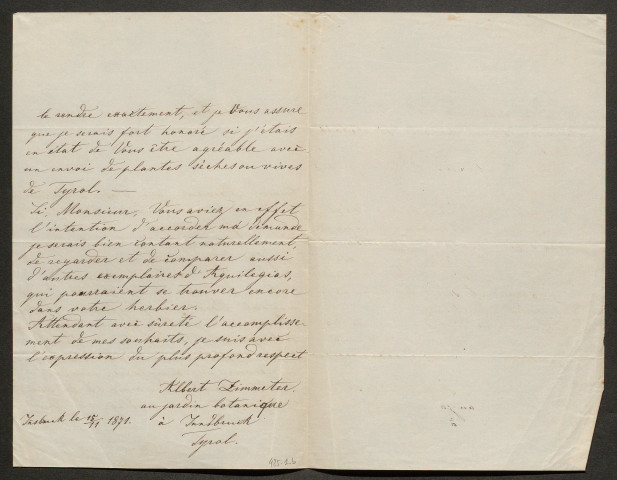 le rendre exactement, et je Vous assure
que je serais fort honoré si j'étais
en état de Vous être agréable avec
un envoi de plantes sèches ou vives
de Tyrol. —
Si, Monsieur, Vous aviez en effet
l'intention d'accorder ma demande
je serais bien content naturellement,
de regarder et de comparer aussi
d'autres exemplaires d'Aquilegias,
qui pourraient se trouver encore
dans votre herbier.
Attendant avec sûreté l'accomplisse-
ment de mes souhaits, je suis avec
l'expression du plus profond respect
Albert Zimmeter
au jardin botanique
à Innsbruck
Tyrol.
Insbruck le 15/11 1871.